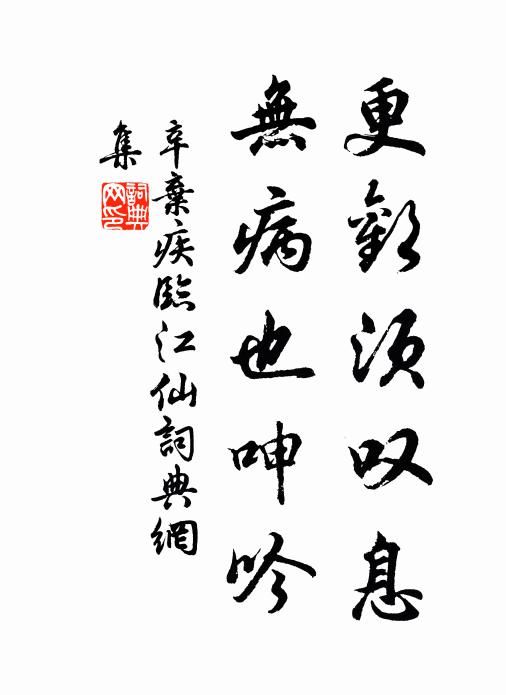 更歡須叹息
無病也呻吟
辛棄疾臨江仙詞典網
集
詞典
网印